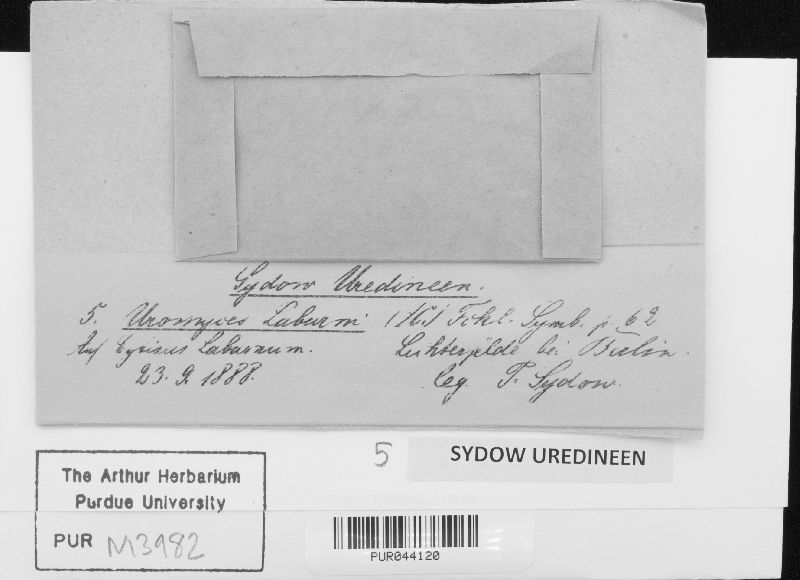 Sydow Uredineen.
5. Uromyces Laburni (DC) Fckl. Symb. p 62
Auf Cytisus Laburnum. Lichterfelde bei Berlin.
23. 9. 1888. leg. P. Sydow.
5 SYDOW UREDINEEN
The Arthur Herbarium
Purdue University
PUR M3982
PUR044120